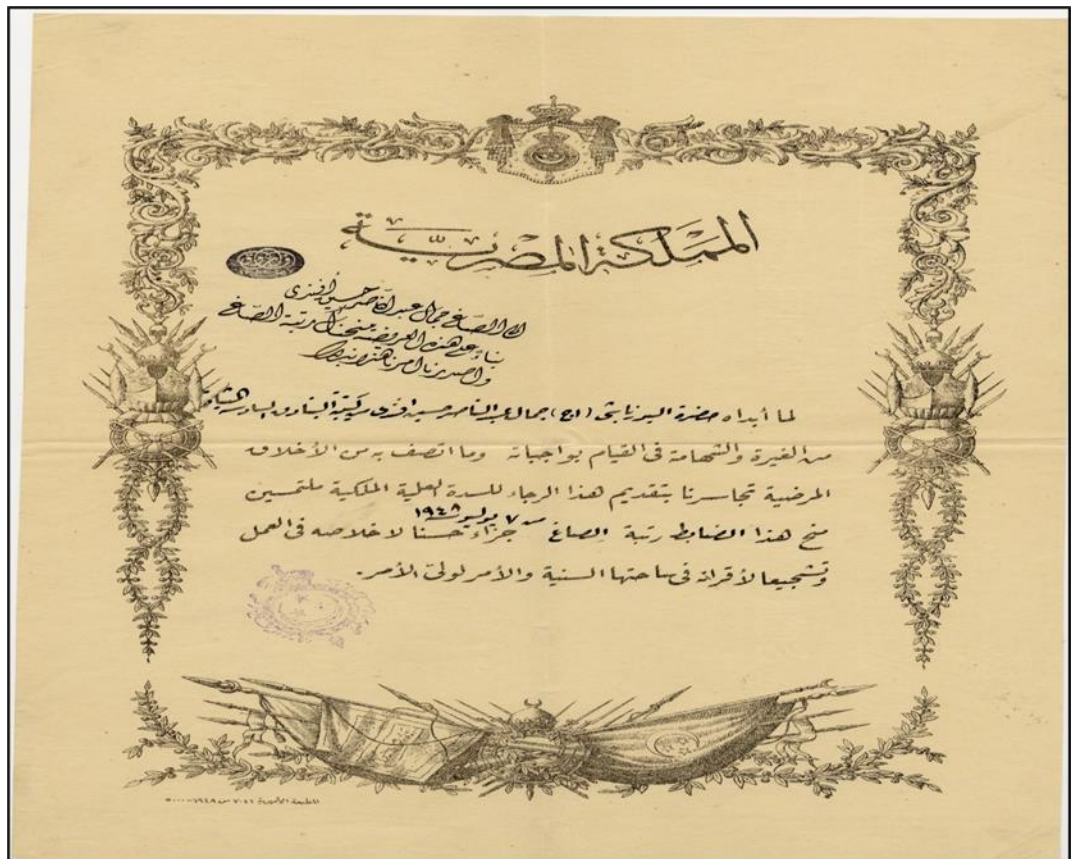 المملكة المصرية
الى الصاغ جمال عبد الناصر حسين أفندى
بناء على هذه العريضة منحناك رتبة الصاغ
وأصدرنا أمرنا هذا
لما أبداه حضرة اليوزباشى (أ٠ح) جمال عبد الناصر حسين أفندى البنادق المشاة
من الغيرة والشهامة فى القيام بواجباته وما اتصف به من الأخلاق
المرضية تجاسرنا بتقديم هذا الرجاء للسدة العلية الملكية ملتمسين
منح هذا الضابط رتبة الصاغ من ٧ يوليو سنة ١٩٤٨ جزاء حسنا لاخلاصه فى العمل
وتشجيعا لأقرانه فى ساحتها السنية والأمر لولى الأمر.
المطبعة الأميرية